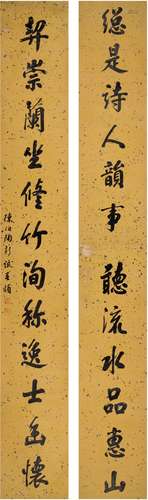 總是詩人韻事聽流水品惠山
契崇蘭坐修竹洵稱逸士幽懷
陳伯陶